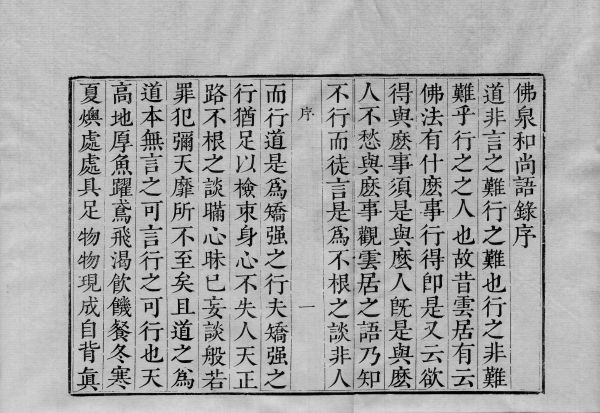 佛泉和尚語錄序
道非言之難行之難也行之非難
難乎行之之人也故昔雲居有云
佛法有什麽事行得卽是又云欲
得與麽事須是與麽人旣是與麽
人不愁與麽事觀雲居之語乃知
不行而徒言是爲不根之談非人
序
一
而行道是爲矯强之行夫矯强之
行猶足以檢束身心不失人天正
路不根之談瞞心昧已妄談般若
罪犯彌天靡所不至矣且道之爲
道本無言之可言行之可行也天
高地厚魚躍鳶飛渴飮饑餐冬寒
夏燠處處具足物物現成自背眞